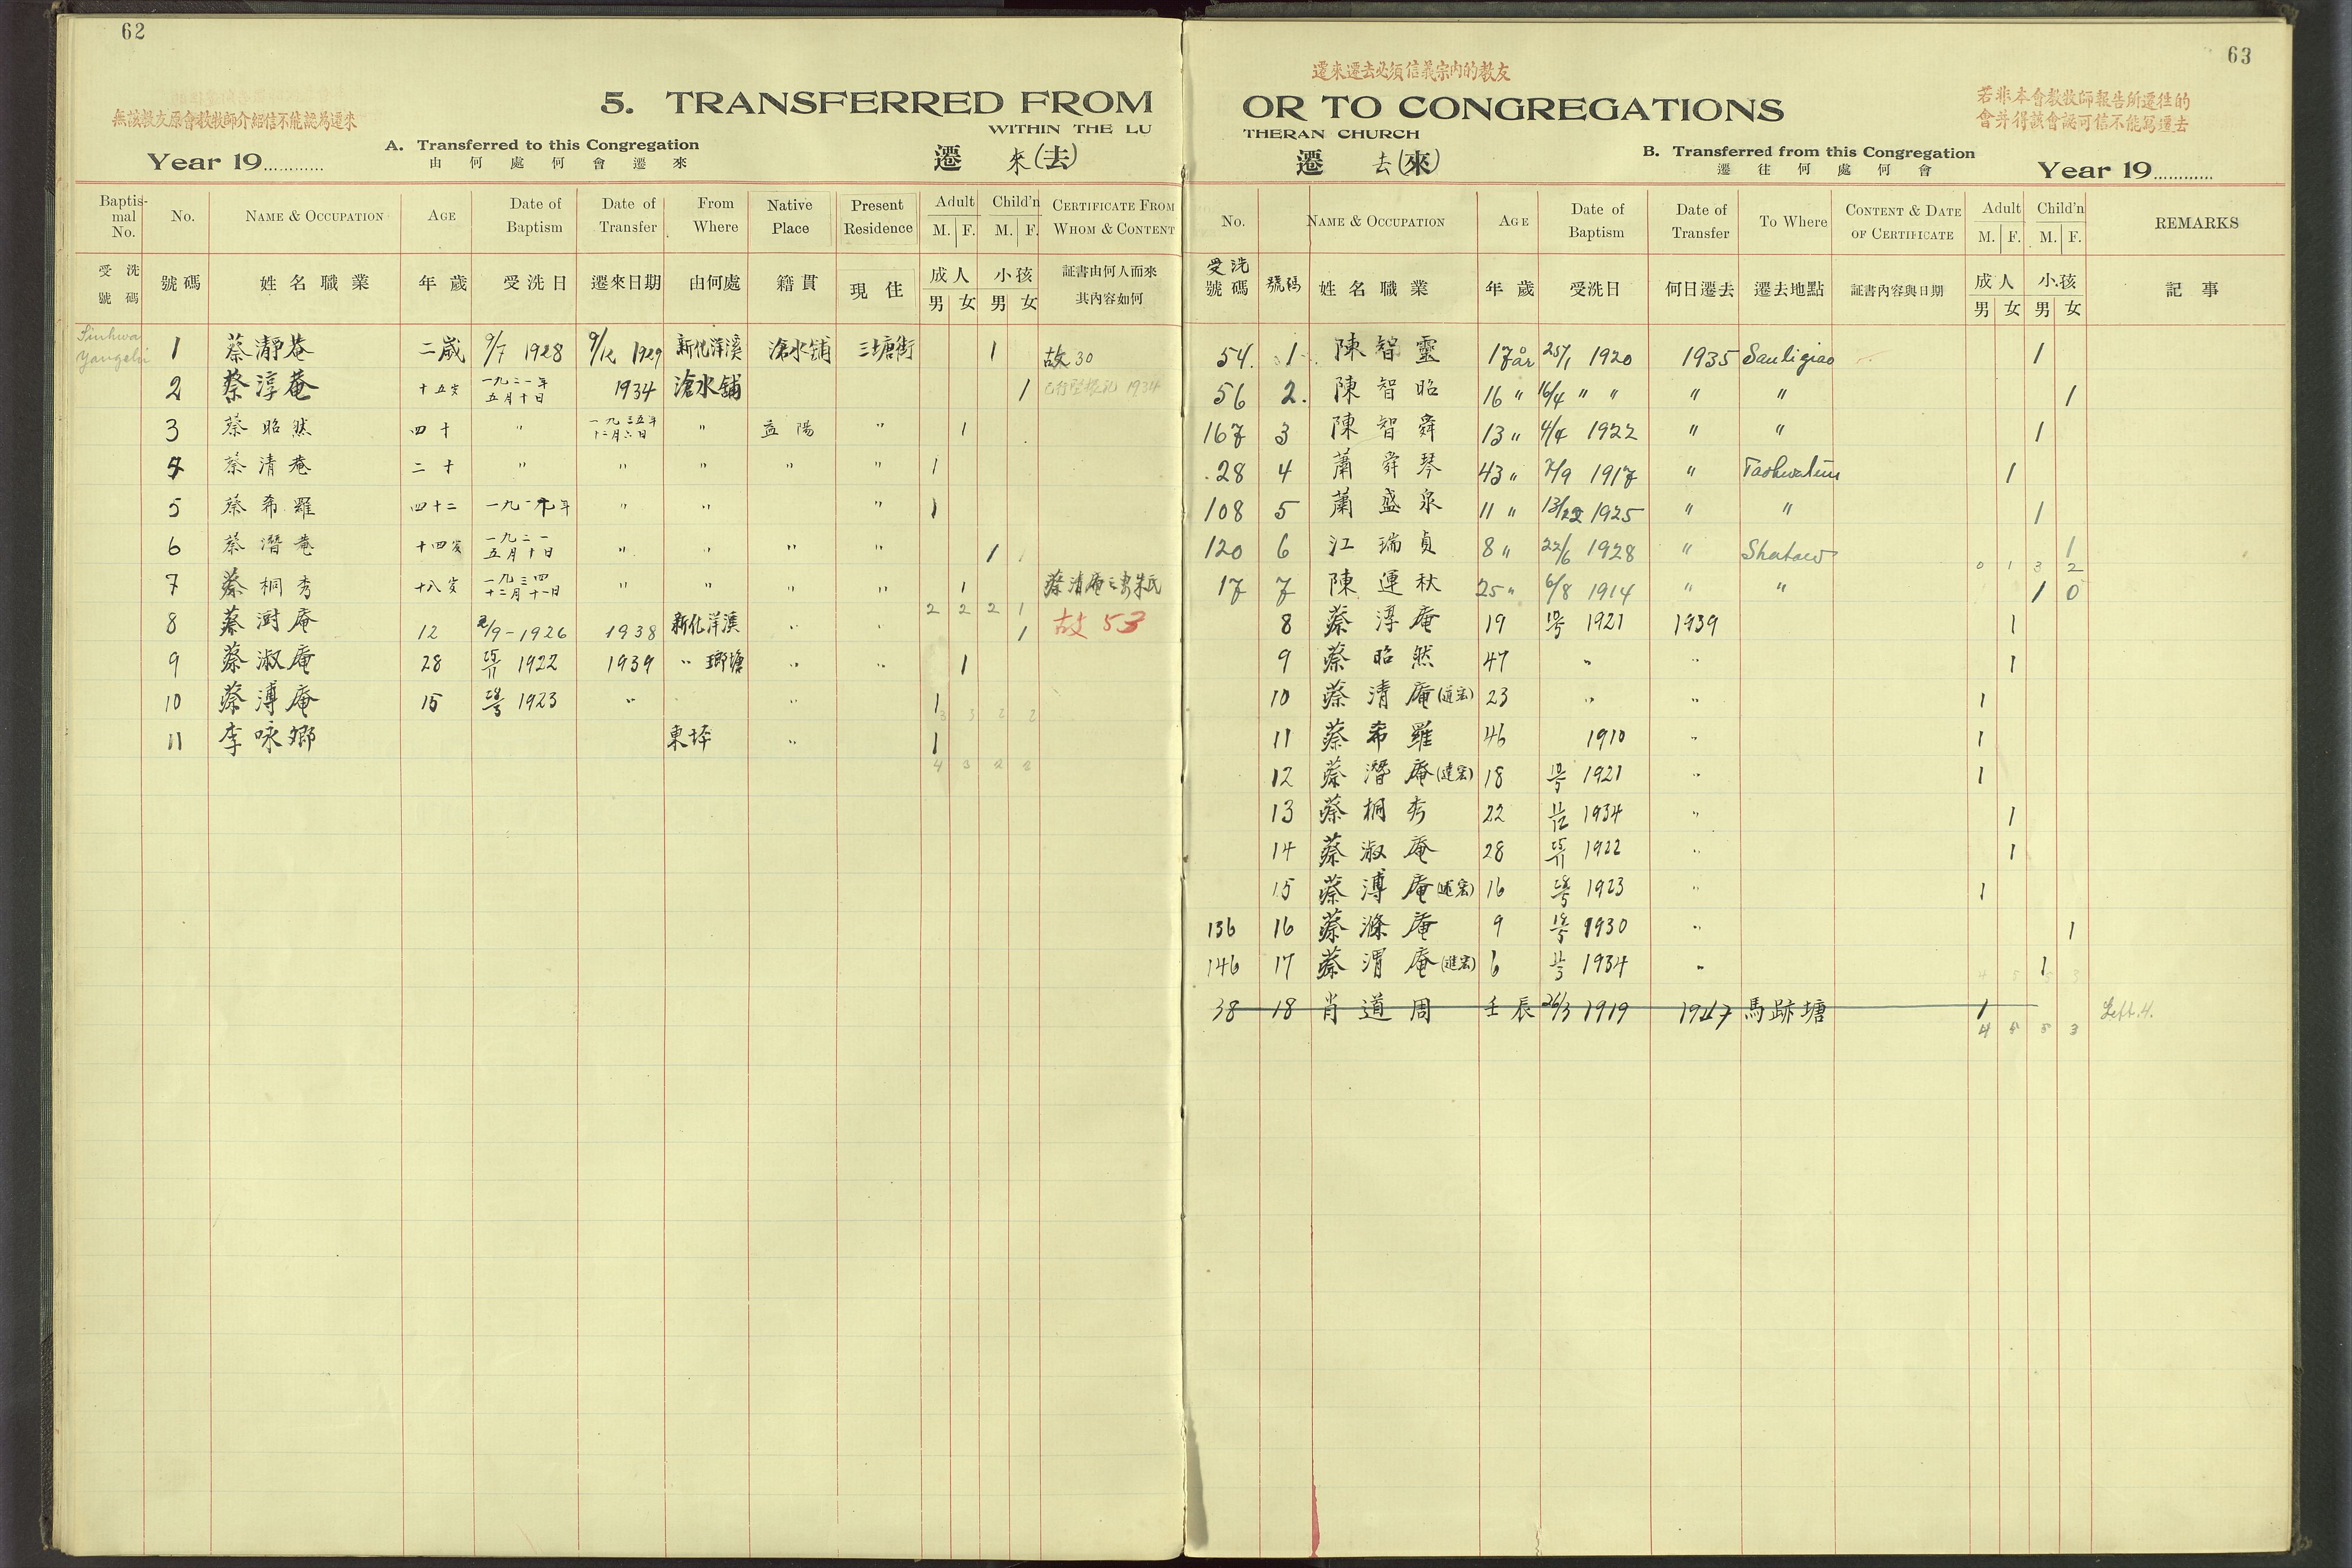 62
無該教友原會教牧師介紹信不能認爲遷來
5. TRANSFERRED FROM
WITHIN THE LU
A. Transferred to this Congregation
由何處何會遷來
遷 來(去)
Year 19............
Baptismal No. No. NAME & OCCUPATION AGE Date of Baptism Date of Transfer From Where Native Place Present Residence Adult M. F. Child'n M. F. CERTIFICATE FROM WHOM & CONTENT
受洗號碼 號碼 姓名職業 年歲 受洗日 遷來日期 由何處 籍貫 現住 成人 男 女 小孩 男 女 証書由何人而來其內容如何
Sinhwa Yangchi 1 蔡瀞菴 二歲 9/7 1928 9/12 1929 新化洋溪 滄水舖 三塘街 1 故30
2 蔡淳菴 十五岁 一九二一年五月十日 1934 滄水舖 1 1934
3 蔡昭然 四十 " 一九三五年十二月六日 " 益陽 " 1
4 蔡清菴 二十 " " " " " 1
5 蔡希羅 四十二 " " " 1
6 蔡潛菴 十四岁 一九二一五月十日 " " " " 1
7 蔡桐秀 十八岁 一九三四十二月十一日 " " " " 1
2 2 2 1
8 蔡澍庵 12 2/9-1926 1938 新化洋溪 " " 1 故53
9 蔡淑庵 28 25/11 1922 1939 " 瑯塘 " " 1
10 蔡溥庵 15 1923 " " 1
3 3 2 2
11 李咏鄉 東坪 " 1
4 3 2 2
63
遷來遷去必須信義宗內的教友
若非本會教牧師報告所遷往的
會并得該會認可信不能寫遷去
OR TO CONGREGATIONS
THERAN CHURCH
遷 去(來)
B. Transferred from this Congregation
遷往何處何會
Year 19............
No. NAME & OCCUPATION AGE Date of Baptism Date of Transfer To Where CONTENT & DATE OF CERTIFICATE Adult M. F. Child'n M. F. REMARKS
受洗號碼 號碼 姓名職業 年歲 受洗日 何日遷去 遷去地點 証書內容與日期 成人 男 女 小孩 男 女 記事
54. 1. 陳智靈 17 år 25/1 1920 1935 Sanligiao 1
56 2. 陳智昭 16 " 16/4 " " " " 1
167 3 陳智舜 13 " 4/4 1922 " " 1
28 4 蕭舜琴 43 " 7/9 1917 " 1
108 5 蕭盛泉 11 " 1925 " " 1
120 6 江瑞貞 8 " 22/6 1928 " 1
0 1 3 2
17 7 陳運秋 25 " 6/8 1914 " " 1 0
8 蔡淳庵 19 10/5 1921 1939 1
9 蔡昭然 47 " " 1
10 蔡清庵(道宏) 23 " " 1
11 蔡希羅 46 1910 " 1
12 蔡潛庵(達宏) 18 10/5 1921 " 1
13 蔡桐秀 22 11/12 1934 " 1
14 蔡淑庵 28 25/11 1922 " 1
15 蔡溥庵(述宏) 16 1923 " 1
136 16 蔡滌庵 9 1930 " 1
146 17 蔡渭庵(進宏) 6 1934 " 1
38 18 肖道周 壬辰 26/3 1919 1947 馬跡塘 1 Left.4.
4 5 5 3